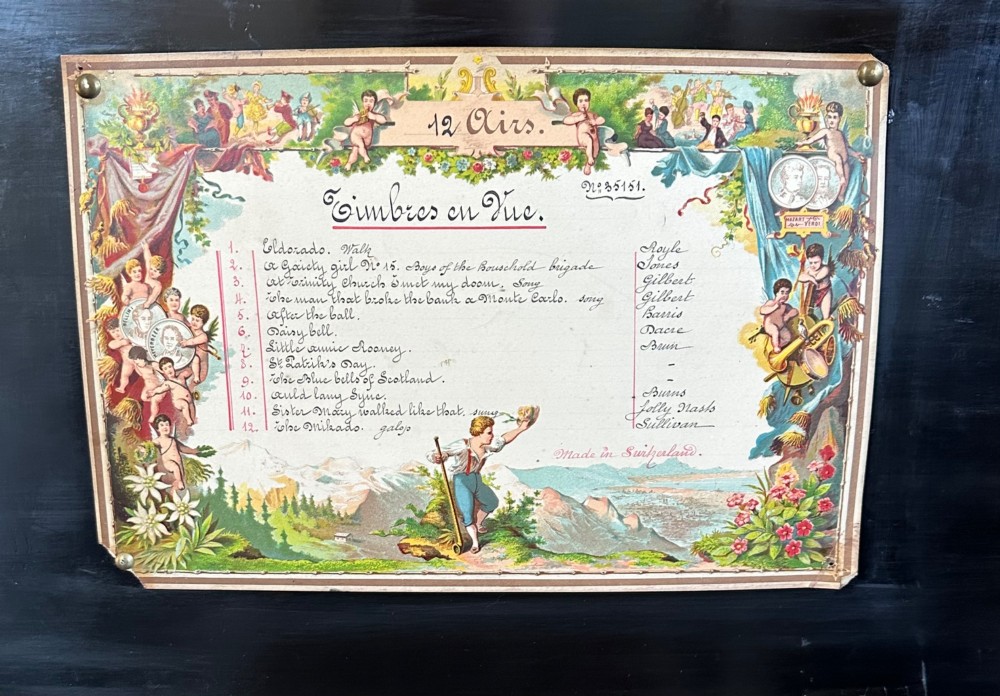 12 Airs.
Nº 35151.
Timbres en Vue.
1. Eldorado. Waltz Royle
2. A Gaiety girl Nº 15. Boys of the Household brigade Jones
3. At Trinity Church I met my doom. Song Gilbert
4. The man that broke the bank a Monte Carlo. song Gilbert
5. After the ball. Harris
6. Daisy bell. Dacre
7. Little annie Rooney. Brun
8. St Patrik's Day. -
9. The Blue bells of Scotland. -
10. Auld lang Syne. Burns
11. Sister Mary walked like that. sung Jolly Nash
12. The Mikado. galop Sullivan
Made in Switzerland.
MOZART
VERDI